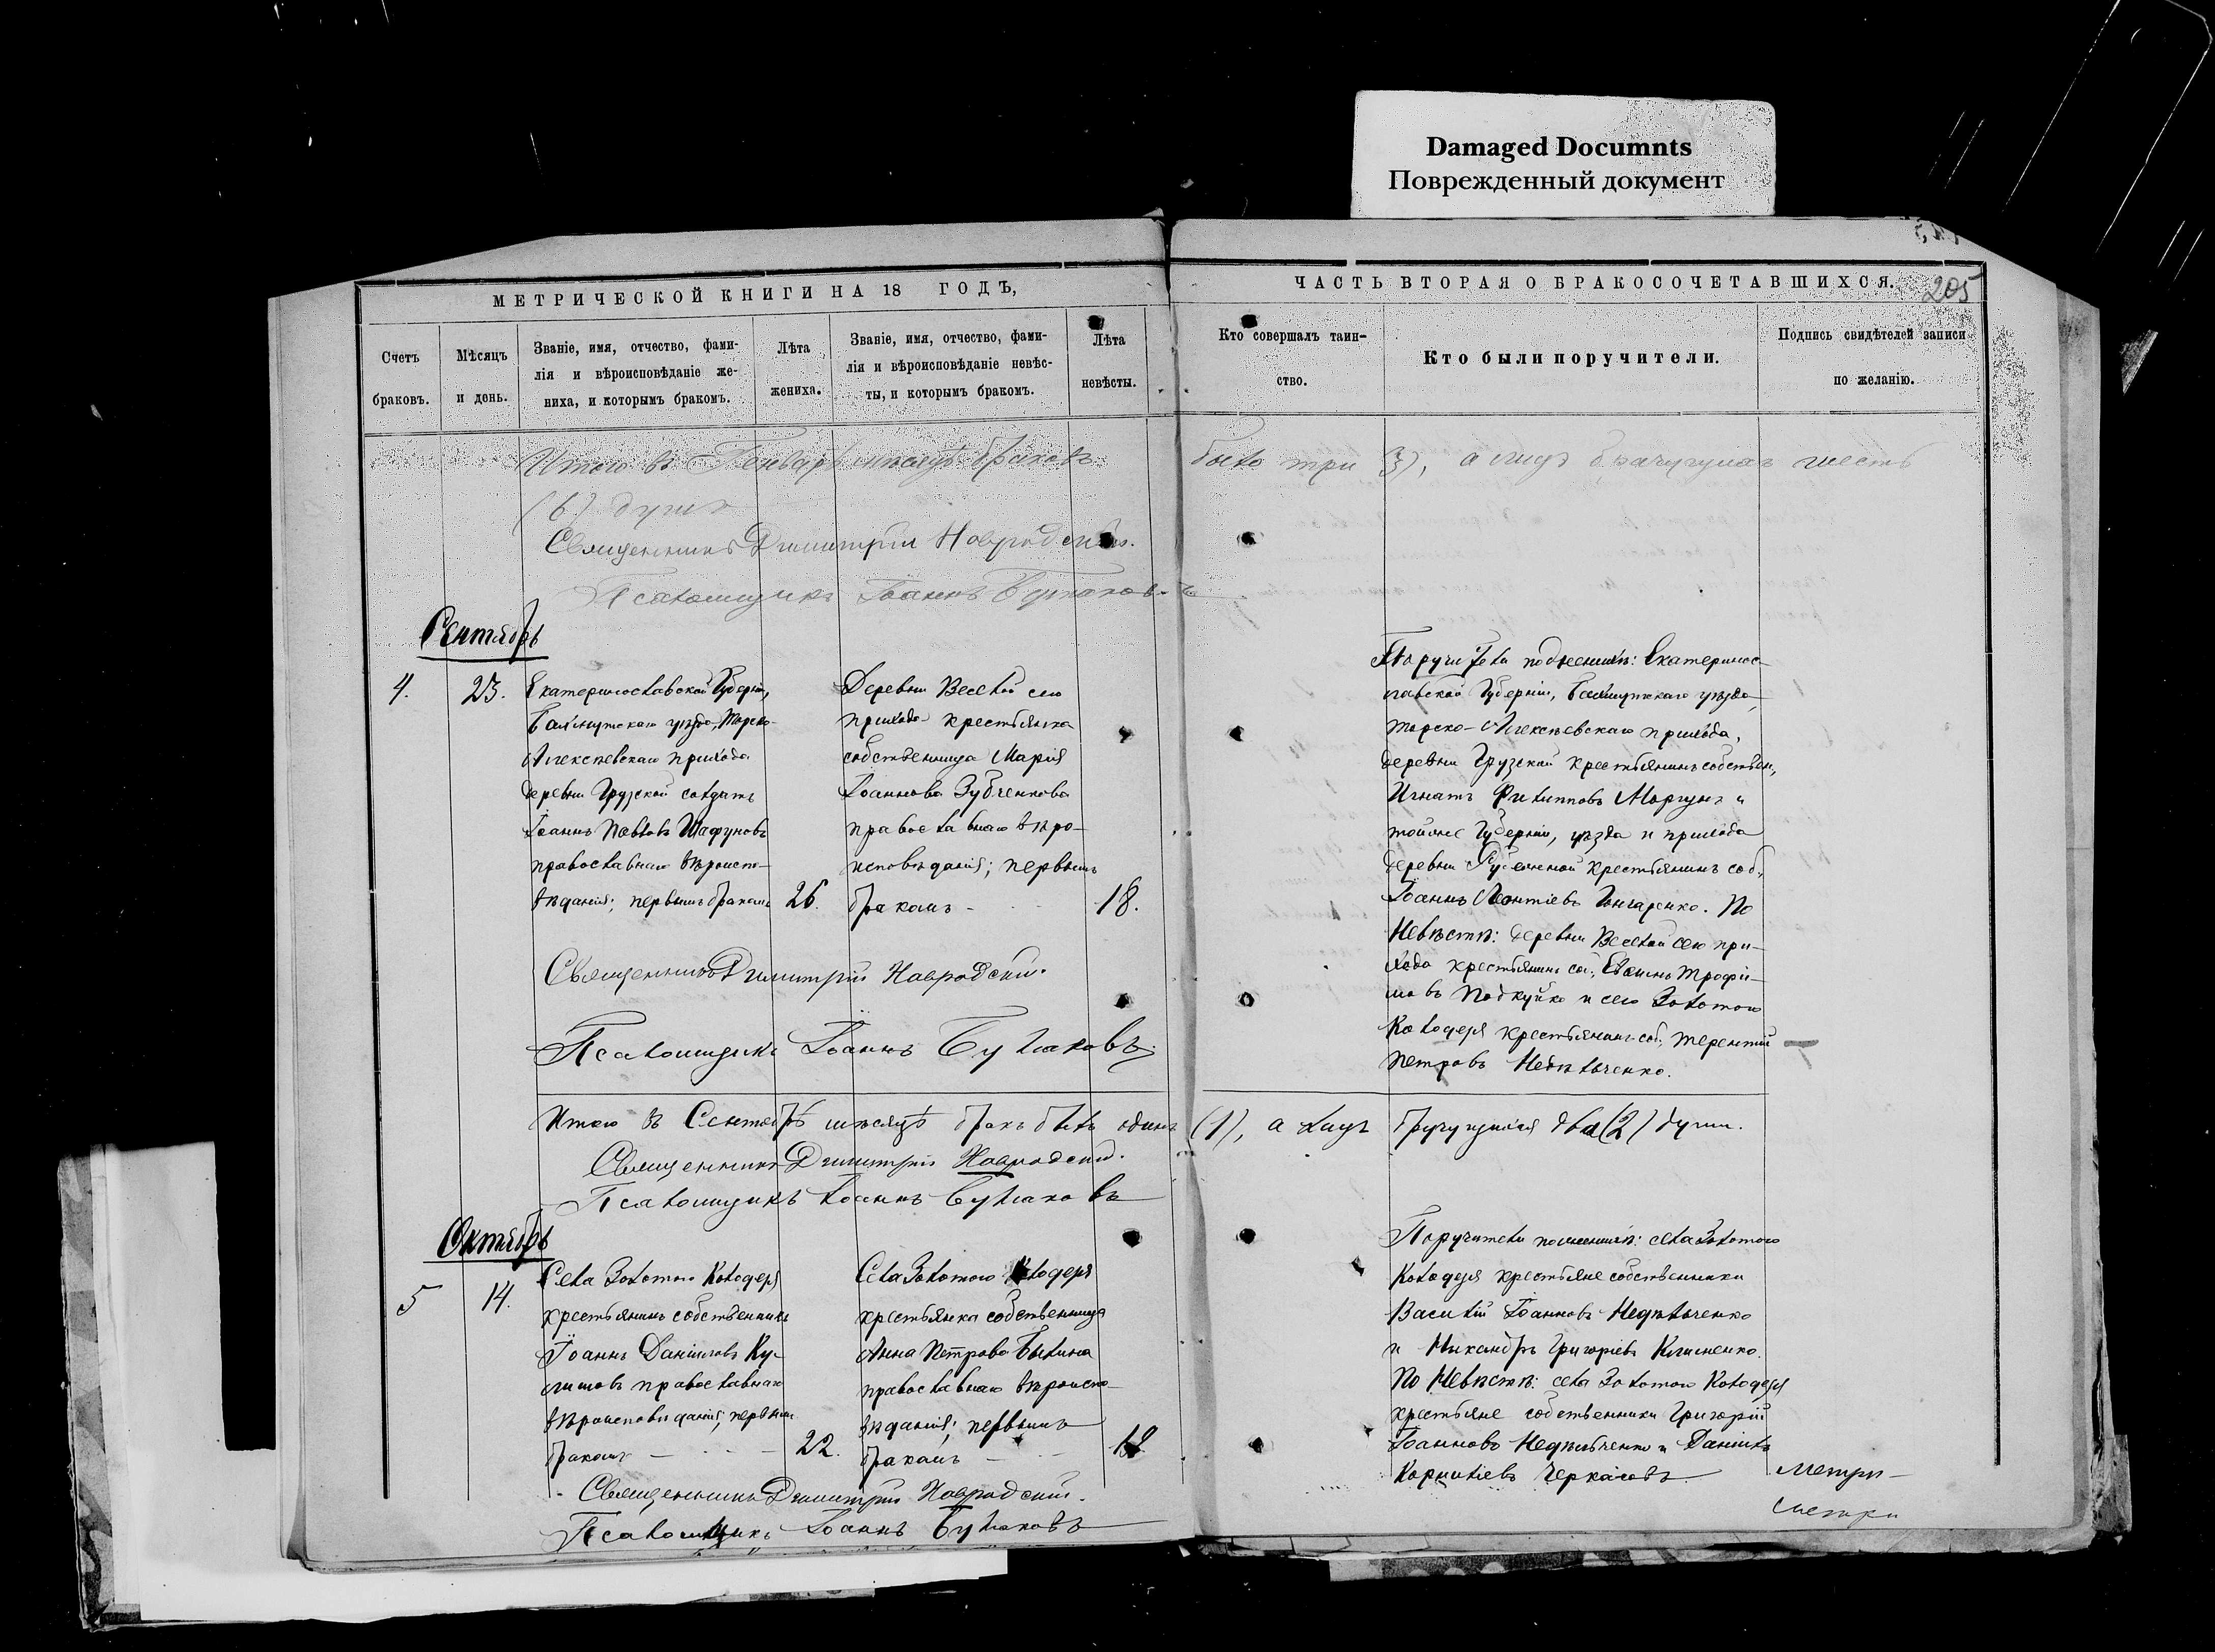 Damaged Documnts
Поврежденный документ
МЕТРИЧЕСКОЙ КНИГИ НА 18 ГОДЪ,
Счетъ
браковъ.
Мѣсяцъ
и день.
Званіе, имя, отчество, фами-
лія и вѣроисповѣданіе же-
ниха, и которымъ бракомъ.
Лѣта
жениха.
Званіе, имя, отчество, фами-
лія и вѣроисповѣданіе невѣс-
ты, и которымъ бракомъ.
Лѣта
невѣсты.
ЧАСТЬ ВТОРАЯ О БРАКОСОЧЕТАВШИХСЯ.
205
Кто совершалъ таин-
ство.
Кто были поручители.
Подпись свидѣтелей записи
по желанію.
Итого въ Генварѣ мѣсяцѣ браковъ было три (3), а лицъ шесть
(6) душъ
Священникъ Димитрій Навродскій.
Псаломщикъ Іоаннъ Булгаковъ
Сентябрь
4.
23.
Екатеринославской Губерніи,
Бахмутскаго уѣзда, Торско-
Алексѣевскаго прихода
деревни Грузской солдатъ
Іоаннъ Павловъ Шафуновъ
православнаго вѣроиспо-
вѣданія; первымъ бракомъ
26.
Деревни Веселой сего
прихода крестьянка
собственница Марія
Іоаннова Зубченкова
православнаго вѣро-
исповѣданія; первымъ
бракомъ -
18.
Поручители по женихѣ: Екатеринос-
лавской Губерніи, Бахмутскаго уѣзда,
Торско-Алексѣевскаго прихода,
деревни Грузской крестьянинъ собствен,
Игнатъ Филипповъ Моргунъ и
тойже Губерніи, уѣзда и прихода
деревни крестьянинъ соб.,
Іоаннъ Леонтіевъ Гончаренко. По
Невѣстѣ: деревни Веселой сего при-
хода крестьянинъ соб., Трофи-
мовъ Подкуйко и села Золотого
Колодезя крестьянинъ соб. Терентій
Петровъ Недѣльченко.
Священникъ Димитрій Навродскій.
Псаломщикъ Іоаннъ Булгаковъ
Итого въ Сентябрѣ мѣсяцѣ бракъ былъ одинъ (1), а лицъ два (2) души.
Священникъ Димитрій Навродскій.
Псаломщикъ Іоаннъ Булгаковъ
Октябрь
5
14.
Села Золотого Колодезя
крестьянинъ собственникъ
Іоаннъ Даніиловъ Ку-
лишовъ православнаго
вѣроисповѣданія; первымъ
бракомъ -
22.
Села Золотого Колодезя
крестьянка собственница
Анна Петрова Былина
православнаго вѣроиспо-
вѣданія; первымъ
бракомъ -
Поручители по женихѣ: села Золотого
Колодезя крестьяне собственники
Василій Іоанновъ Недѣльченко
и Никандръ Григоріевъ Клименко.
По Невѣстѣ: села Золотого Колодезя
крестьяне собственники Григорій
Іоанновъ Недѣльченко и Даніилъ
Корниліевъ Черкасовъ
Священникъ Димитрій Навродскій.
Псаломщикъ Іоаннъ Булгаковъ
Метри-
Метри